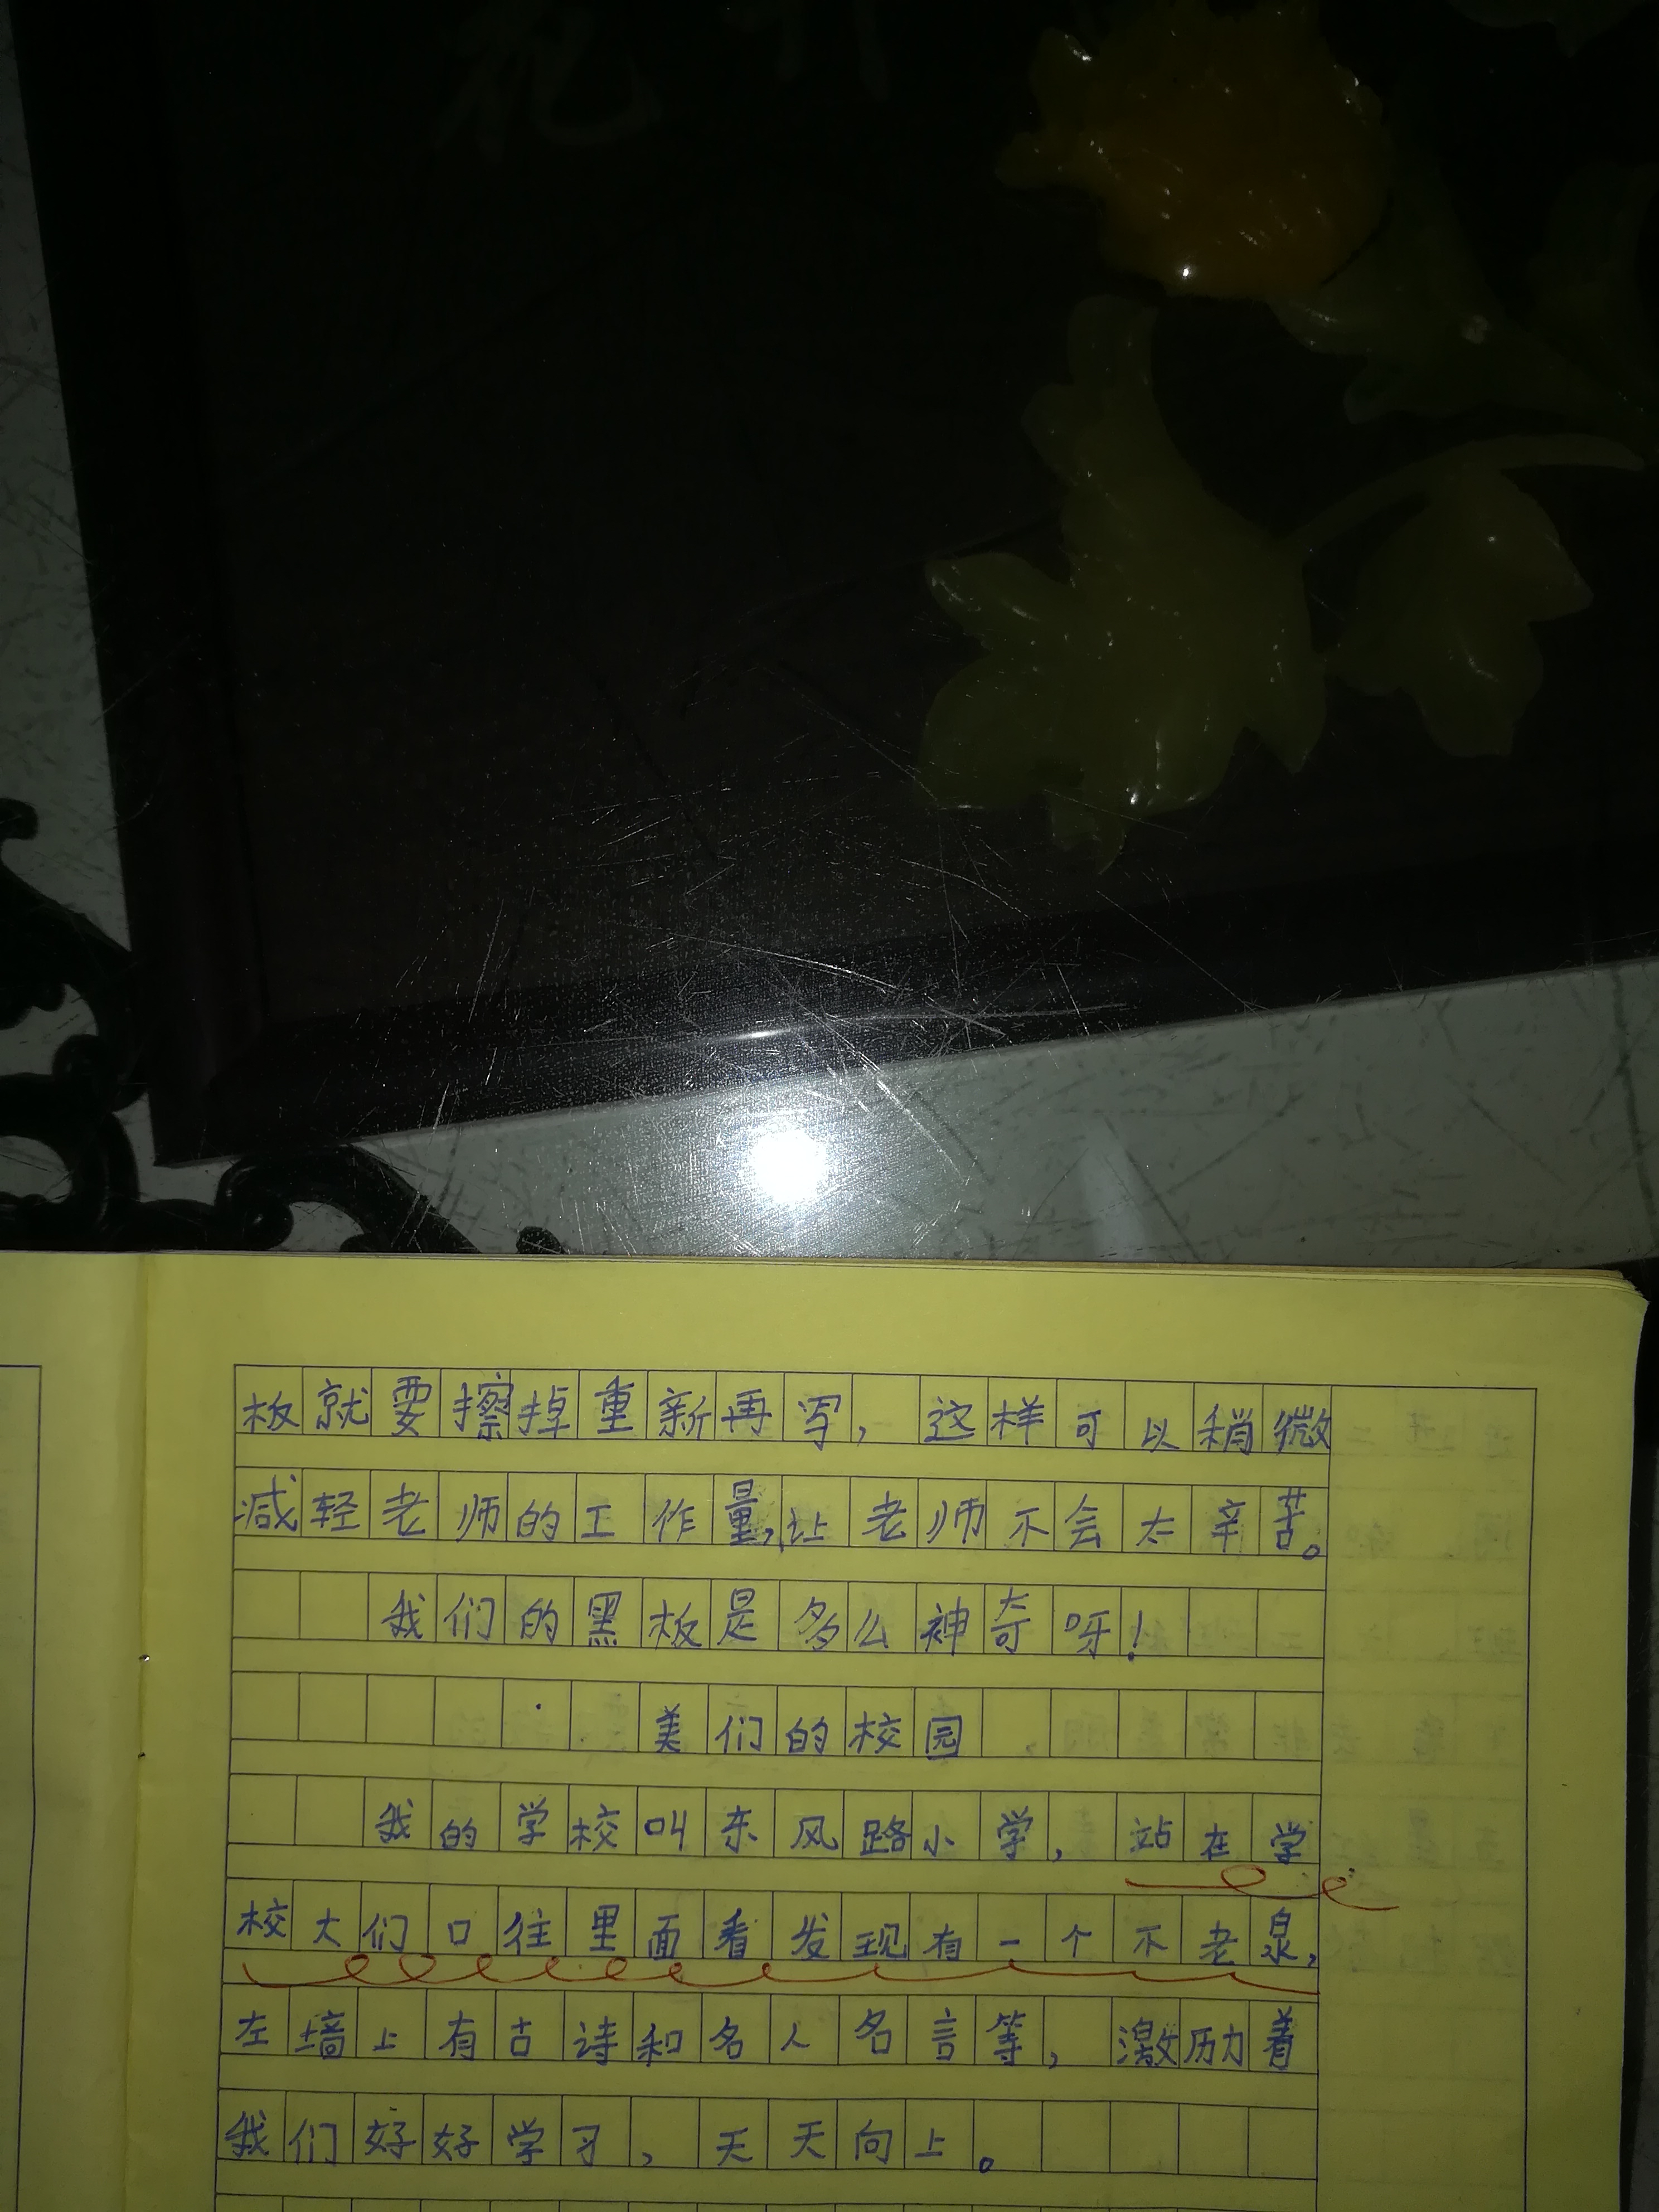 花开
板就要擦掉重新再写，这样可以稍微
减轻老师的工作量，让老师不会太辛苦。
我们的黑板是多么神奇呀！
美们的校园
我的学校叫东风路小学，站在学
校大们口往里面看发现有一个不老泉，
左墙上有古诗和名人名言等，激励着
我们好好学习，天天向上。